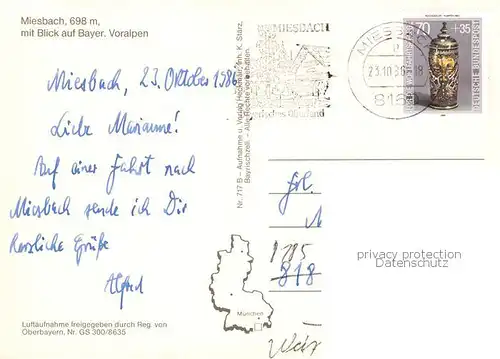 Miesbach, 698 m,
mit Blick auf Bayer. Voralpen
Miesbach, 23. Oktober 1986
Liebe Marianne!
Auf einer Fahrt nach
Miesbach sende ich Dir
herzliche Grüße
Alfred
Luftaufnahme freigegeben durch Reg. von
Oberbayern, Nr. GS 300/8635
Nr. 717 B – Aufnahme u. Verlag Heckmair, Inh. K. Stärz,
Bayrischzell – Alle Rechte vorbehalten.
MIESBACH
Oberland
MIESBACH
23.10.86-18
816
70
+35
DEUTSCHE BUNDESPOST
Frl.
M
8185
818
München
privacy protection
Datenschutz